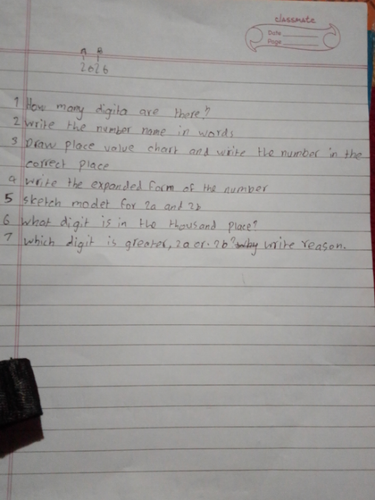 classmate
Date
Page
A B
2026
1 How many digita are there?
2 write the number name in words
3 Draw place value chart and write the number in the
correct place
4 write the expanded form of the number
5 sketch model for 2a and 2b
6 what digit is in the thousand place?
7 which digit is greater, 2a or 2b? why write reason.